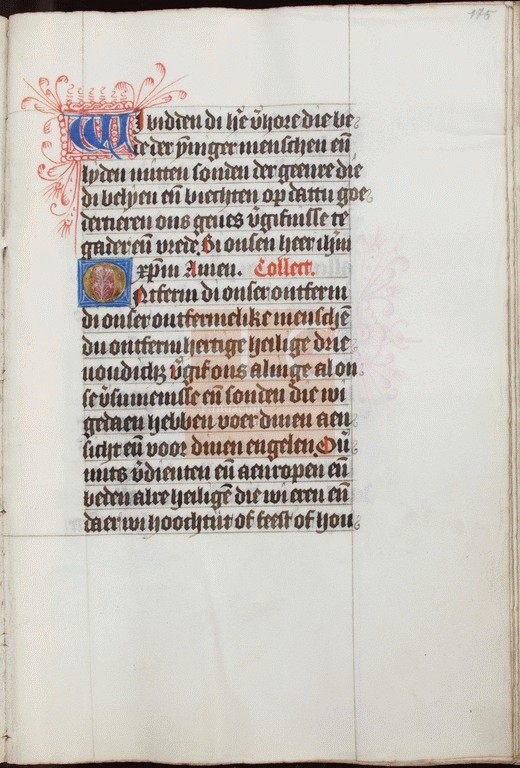 175
Wi bidden di hēe v̄hore die be
de der p̄inger menschen en̄
lyden mitten sonden der geenre die
di belyen en̄ biechten op dattu goe
dertieren ons geues v̄gifnisse te
gader en̄ vrede. Bi onsen heer ih̄m
xp̄m Amen. Collect.
Ontferm di onser ontferm
di onser ontfermelike menschē
du ontfermhertige heilige drie
uoudich; v̄gif ons alinge al on
se v̄sumenisse en̄ sonden die wi
gedaen hebben voer dinen aen
sicht en̄ voor dinen engelen. Ou̅
mits v̄dienten en̄ aenropen en̄
beden alre heiligē die wi eren en̄
daer wi hoochtijt of feest of hou